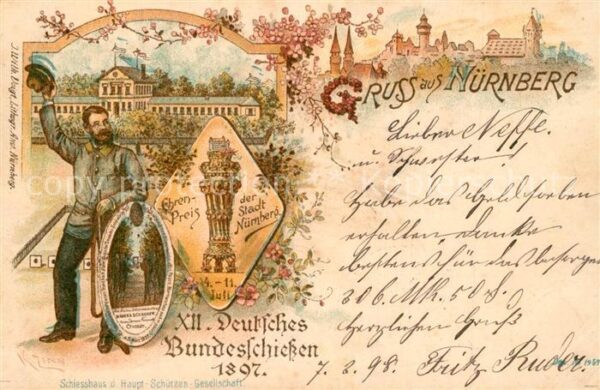 Gruss aus Nürnberg
Ehren-Preis
der Stadt Nürnberg
4.-11. Juli
XII. Deutsches
Bundesschießen
1897.
Schiesshaus d. Haupt-Schützen-Gesellschaft.
Lieber Neffe.
u. Schwester!
Habe das Geld soeben
erhalten, danke
bestens für das besorgen
306 Mk. 50 ₰
herzlichen Gruß
7. 2. 98. Fritz Ruder.